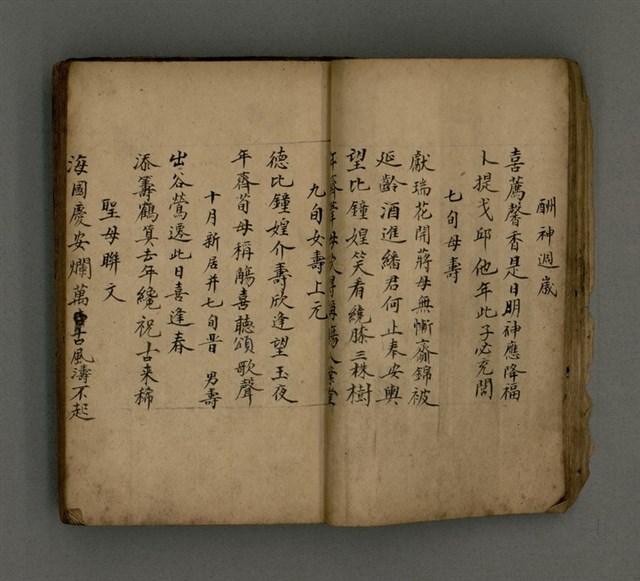 酬神週歲
喜薦馨香是日明神應降福
卜提戈邱他年此子必充閭
七旬母壽
獻瑞花開蔣母無慚齋錦被
延齡酒進繙君何止奉安輿
望比鐘媓笑看繞膝三株樹
年齊
九旬女壽上元
德比鐘媓介壽欣逢望玉夜
年齊荀母稱觴喜聽頌歌聲
十月新居并七旬晋 男壽
出谷鶯遷此日喜逢春
添籌鶴算去年纔祝古来稀
聖母聯文
海國慶安爛萬古風濤不起